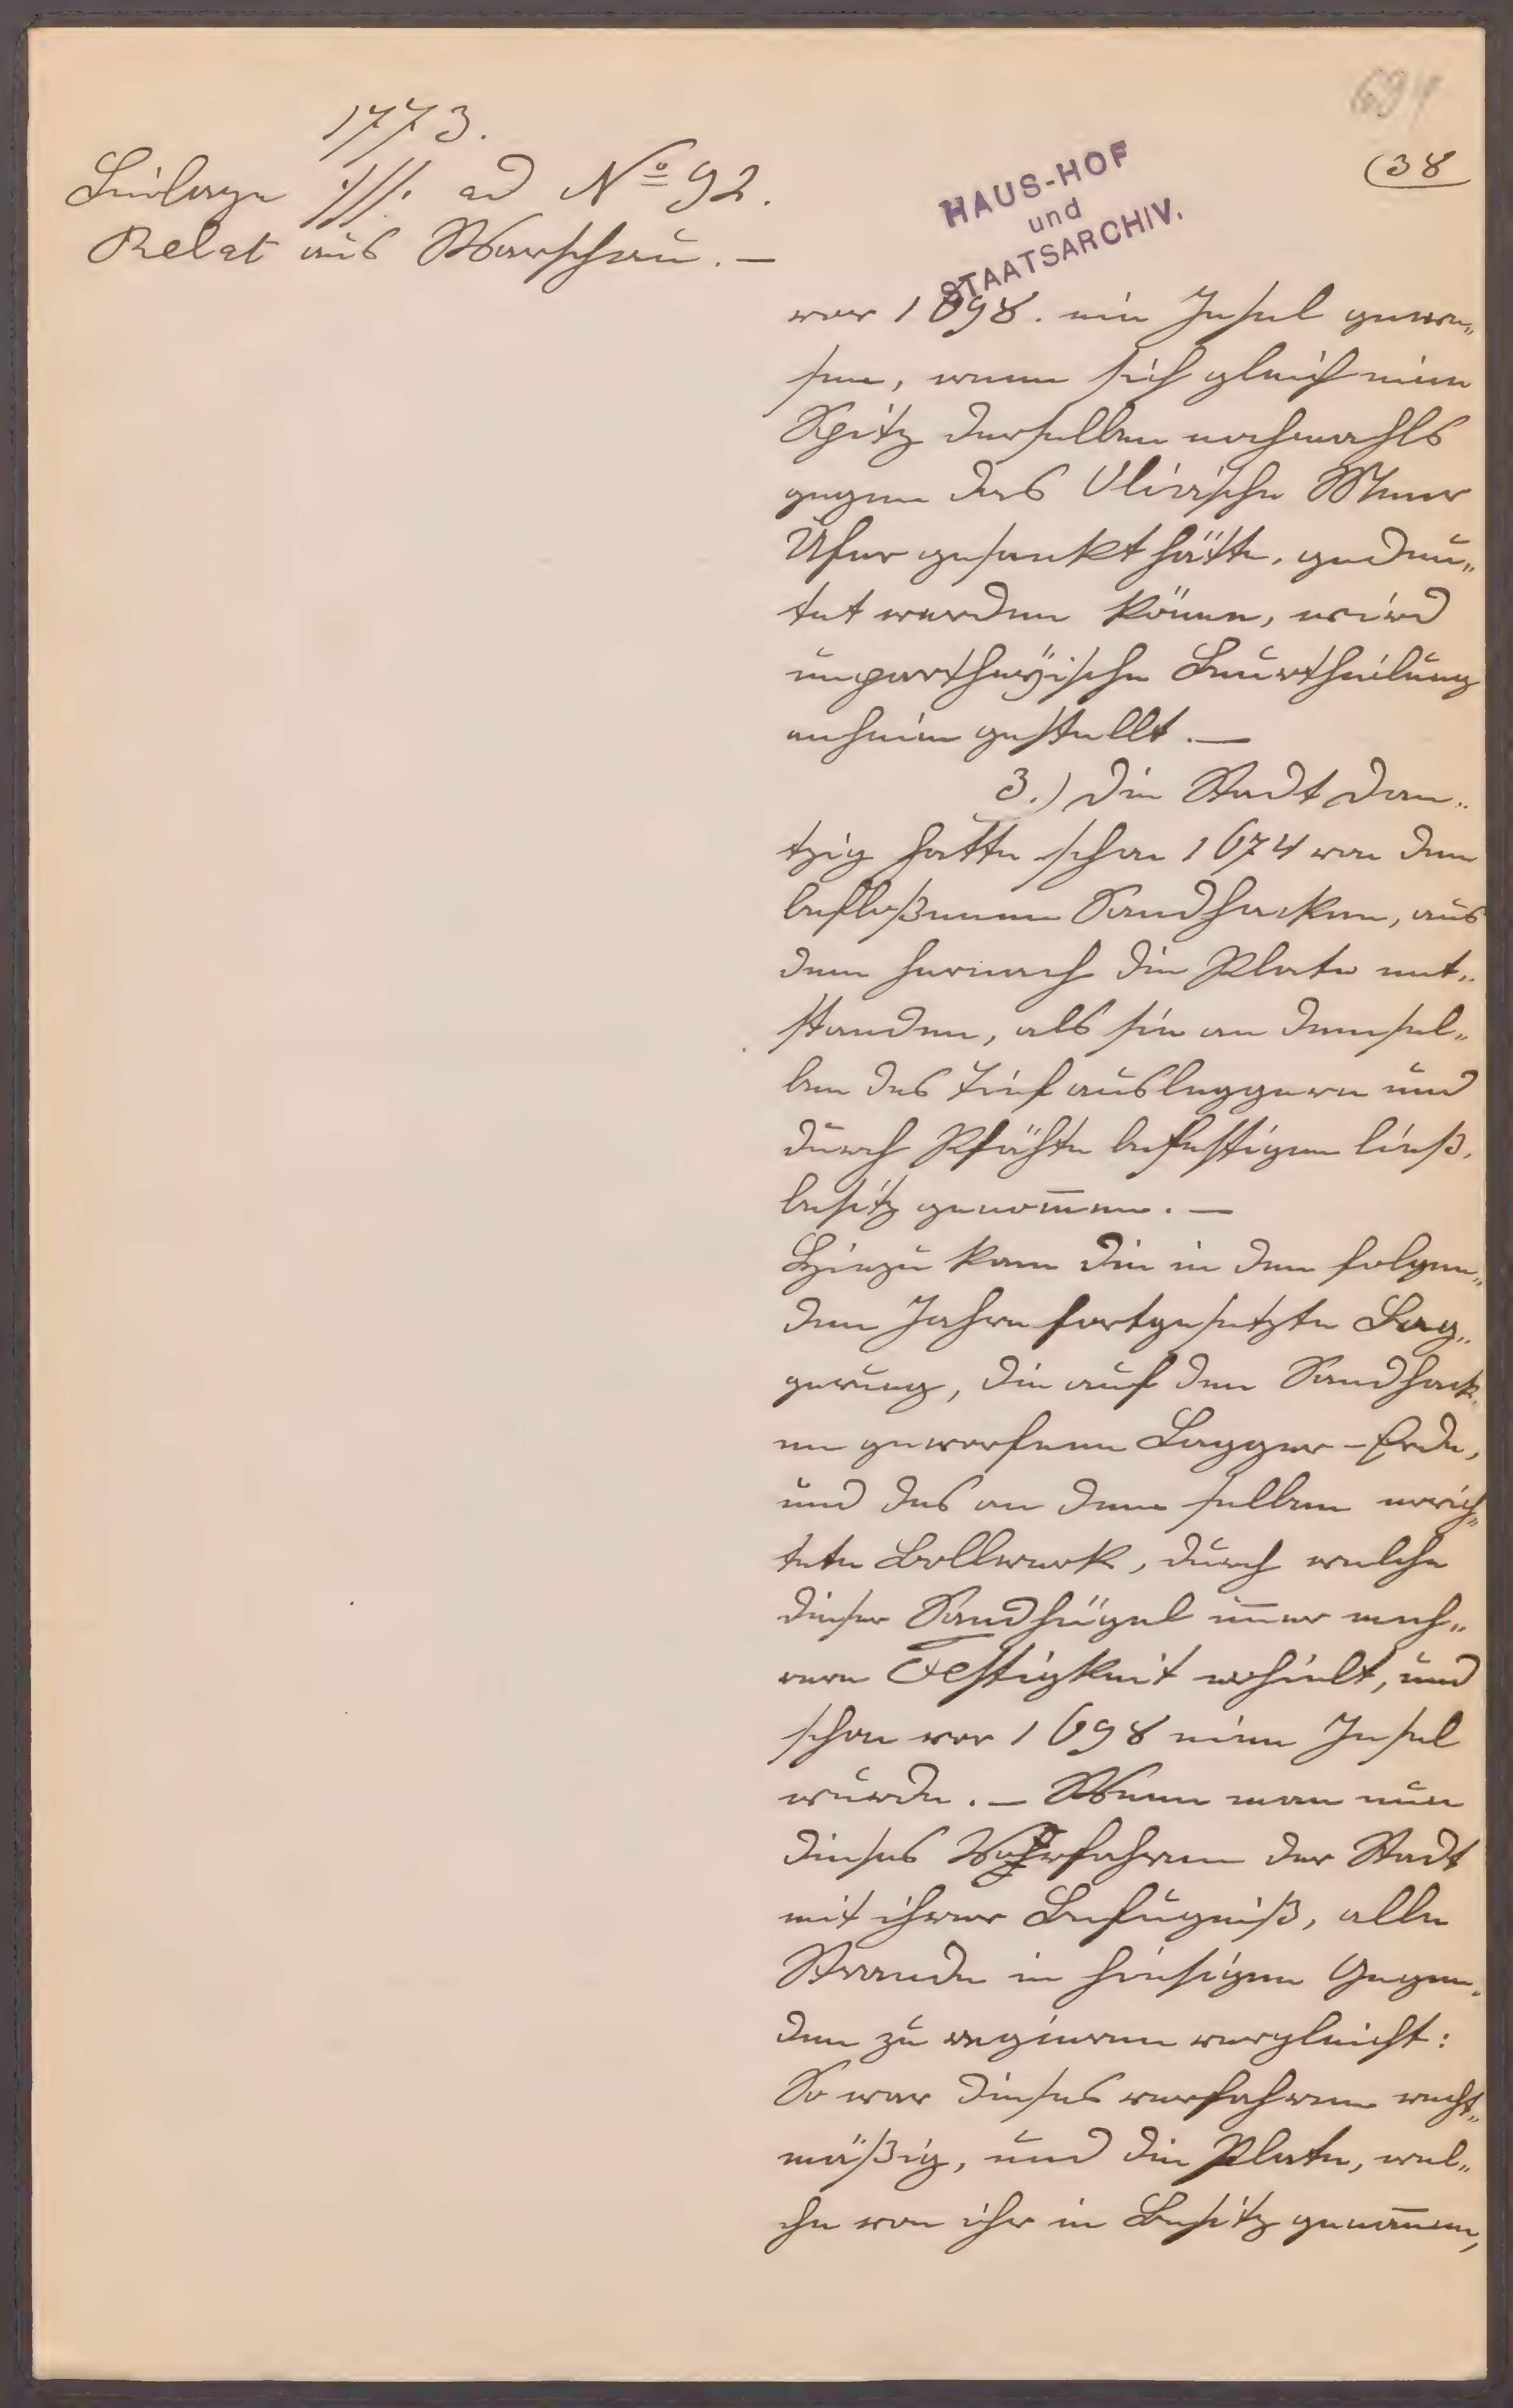 694
(38
1773.
Beilage ·///. ad No 92.
Relat aus Warschau. —
HAUS-HOF
und
STAATSARCHIV.
vor 1698. ein Insel gewe„
sen, wenn sich gleich eine
Spitz derselben nachmahls
gegen das Olivische
Ufer gesenkt hätte, gedeu„
tet werden könne, wird
unpartheyischer Beurtheilung
anheim gestellt. —
3.) Die Stadt Dan„
tzig hatte schon 1674 von dem
befloßenen Sandhacken, aus
dem hernach die Plate ent„
standen, als sie an demsel„
ben das Tief ausbaggern und
durch Pfähle befestigen ließ,
besitz genommen. —
Hiezu kam die in den folgen„
den Jahren fortgesetzte Bag„
gerung, die auf den Sandhack„
en geworfene Bagger-Erde,
und das an dem selben errich„
tete Bollwerk, durch welche
dieser Sandhügel immer meh„
rere Festigkeit erhielt, und
schon vor 1698 eine Insel
wurde. — Wenn man nun
dieses Verfahren der Stadt
mit ihrer Befugniß, alle
Strande in hiesigen Gegen„
den zu regieren vergleicht:
So war dieses verfahren recht„
mäßig, und die Plate, wel„
che von ihr in Besitz genommen,